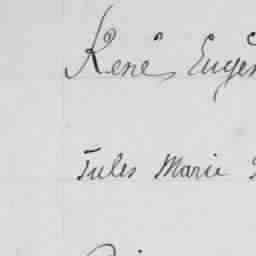 René, Eugèn
Jules Marie